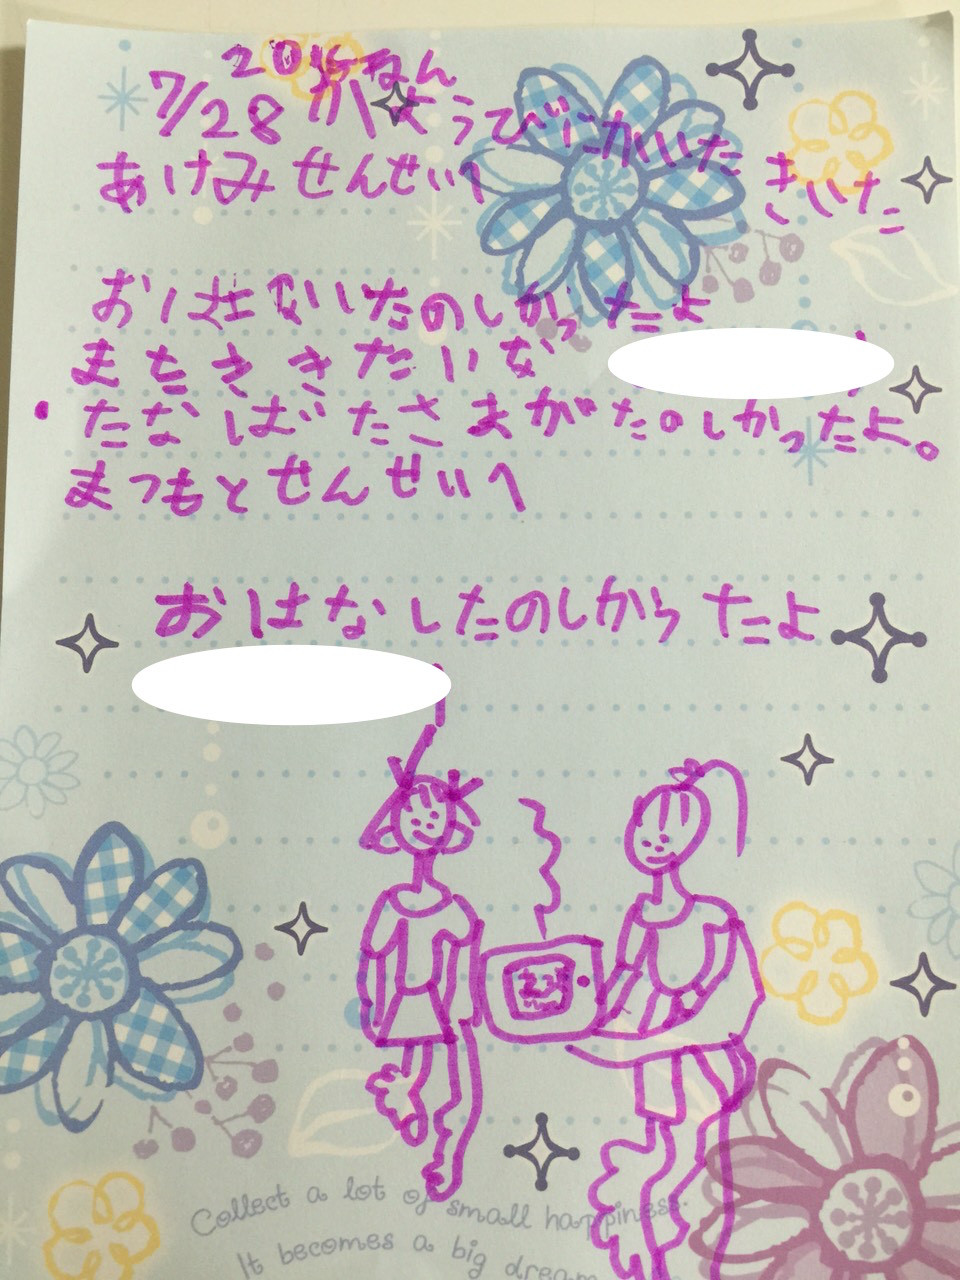 20 ねん
7/28 かようびにかいた
あけみせんせいへ
きいた
おはなしたのしかったよ
またききたいな
・たなばたさまがたのしかったよ。
まつもとせんせいへ
おはなしたのしかったよ
Collect a lot of small happiness.
It becomes a big dream